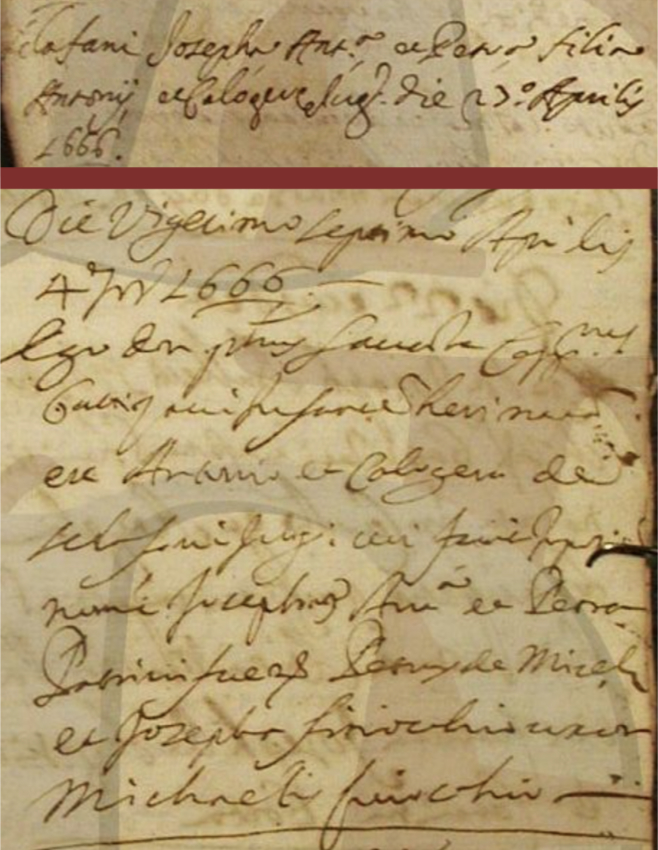 sclafani Josepha Ant.ª et Petra filia
Antonij et Calogere jugl. die 27.º Aprilis
1666.
Die Vigesimo septimo Aprilis
4ª Ind. 1666
Ego Don saverita Capp.nus
baptizavi infantem heri natam
ex Antonio et Calogera de
sclafani jug: cui impositum
nomen Josepha Ant.ª et Petra
Patrini fuerunt Petrus de Miceli
et Josepha finochio uxor
Michaelis finochio